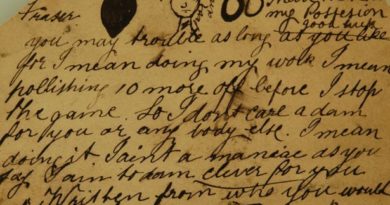 Fraser
my Possesion
good luck
you may trouble as long as you like
for I mean doing my work I mean
pollishing 10 more off before I stop
the game. So I dont care a dam
for you or any body else. I mean
doing it. I aint a maniac as you
say I am to dam clever for you
Written from who you would